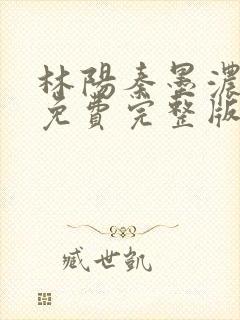 林陽秦墨濃
免費完整版
臧世凱